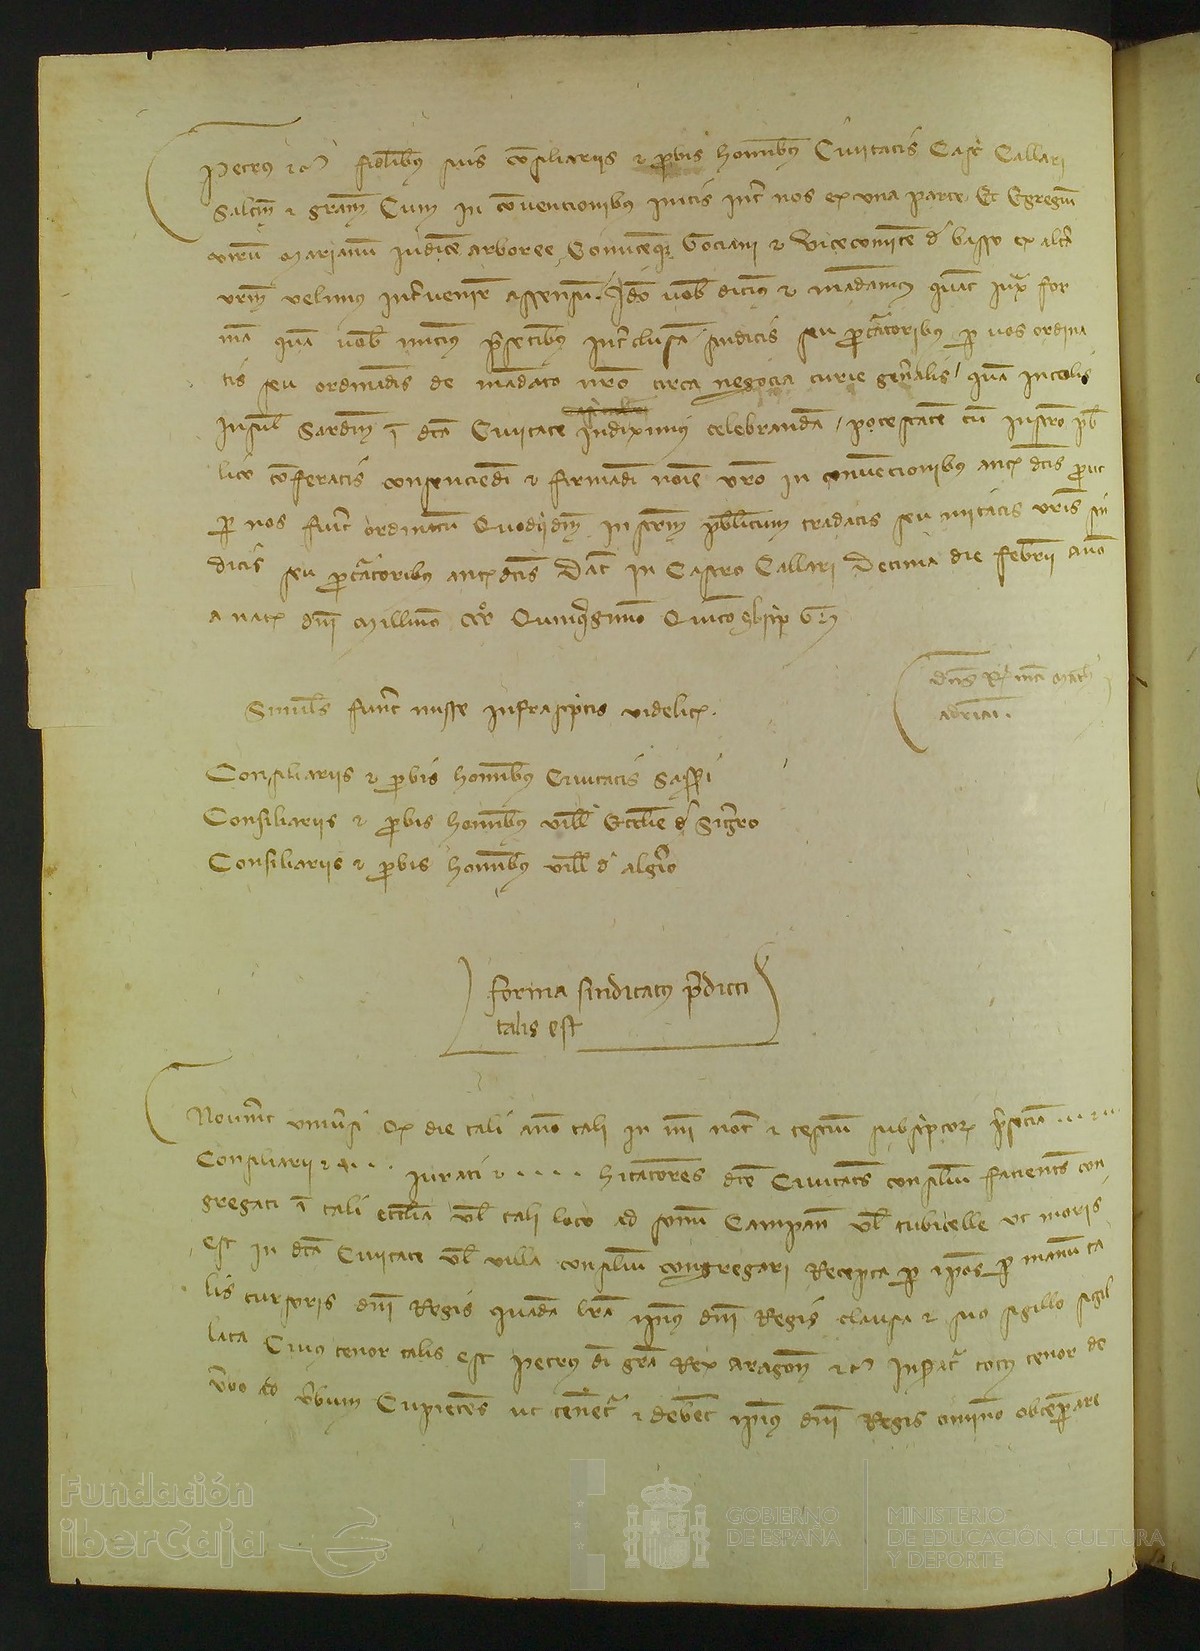 Petrus etc fidelibus suis consiliariis et probis hominibus Civitatis Castri Callari
Salutem et gratiam Cum in convencionibus initis inter nos ex una parte Et Egregium
virum Marianum iudicem arboree Comitemque Gociani et Vicecomitem de basso ex altera
vestrum velimus intervenire assensum. Ideo vobis dicimus et mandamus quatenus iuxta for
mam quam vobis mitimus presentibus interclusam sindicis seu procuratoribus per vos ordina
tis seu ordinandis de mandato nostro circa negocia curie generalis quam incolis
Insule Sardinie in dicta Civitate indiximus celebrandam potestatem cum instrumento pub
lico conferatis consenciendi et firmandi nomine vestro in convencionibus antedictis prout
per nos fuerit ordinatum Quodquidem instrumentum publicum tradatis seu mitatis vestris sin
dicis seu procuratoribus antedictis Datum in Castro Callari Decima die Febrii anno
a nat domini Millimo CCCo Quinqagesimo Quinto
dominus Rex
adriani.
Similes fuerunt misse infrascriptis videlicet.
Consiliariis et probis hominibus Civitatis Sasseri
Consiliariis et probis hominibus ville Ecclesie de Sigerro
Consiliariis et probis hominibus ville de algerio
forma sindicatus predicti
talis est
Noverint universi Quod die tali anno tali in mei notarii et testium subscriptorum presencia ... et ...
Consiliarii et .... iurati et ..... habitatores dicte Civitatis consilium facientes con
gregati in tali ecclesia vel tali loco ad sonum Campane vel tubicelle ut moris
est in dicta Civitate vel villa consilium congregari Recepta per ipsos per manum ta
lis cursoris domini Regis quadam littera ipsius domini Regis clausa et suo sigillo sigil
lata Cuius tenor talis est Petrus dei gratia Rex Aragonum etc Inseratur totus tenor de
verbo ad verbum Cupientes ut tenentur et debent ipsius domini Regis obtemperare
Fundación
iberCaja
GOBIERNO
DE ESPAÑA
MINISTERIO
DE EDUCACIÓN, CULTURA
Y DEPORTE